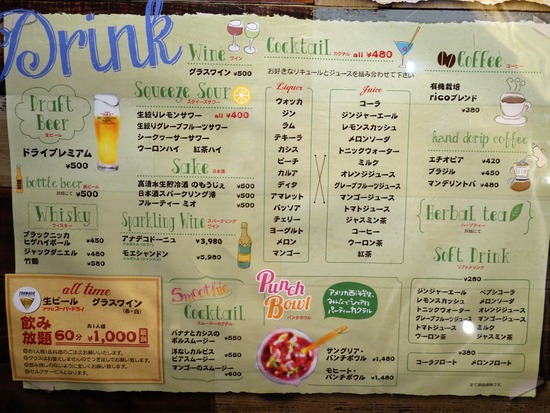 Drink
Wine ワイン
グラスワイン ¥500
Draft Beer
生ビール
ドライプレミアム
¥500
bottle beer
Squeeze Sour
スクイーズサワー
生絞りレモンサワー all ¥400
生絞りグレープフルーツサワー
シークヮーサーサワー
ウーロンハイ 紅茶ハイ
Sake 日本酒
高清水生貯冷酒 のもうじぇ ¥500
日本酒スパークリング澪 ¥500
フルーティー ミオ ¥500
Whisky
ウィスキー
ブラックニッカ
ヒゲハイボール ¥450
ジャックダニエル ¥480
竹鶴 ¥580
Sparkling Wine
スパークリングワイン
アナデコドーニュ ¥3,980
モエシャンドン ¥5,980
Cocktail カクテル all ¥480
お好きなリキュールとジュースを組み合わせて下さい
Liquor
ウォッカ
ジン
ラム
テキーラ
カシス
ピーチ
カルア
ディタ
アマレット
パッソア
チェリー
ヨーグルト
メロン
マンゴー
×
Juice
コーラ
ジンジャーエール
レモンスカッシュ
メロンソーダ
トニックウォーター
ミルク
オレンジジュース
グレープフルーツジュース
マンゴージュース
トマトジュース
ジャスミン茶
コーヒー
ウーロン茶
紅茶
Coffee
コーヒー
有機栽培
ricoブレンド
¥380
hand dorip coffee
エチオピア ¥420
ブラジル ¥450
マンデリンナバ ¥480
Herbal tea
ハーブティー
Soft Drink
ソフトドリンク
ジンジャーエール
レモンスカッシュ
オレンジジュース
グレープフルーツジュース
トマトジュース
ウーロン茶
ペプシコーラ
メロンソーダ
トニックウォーター
マンゴージュース
ミルク
ジャスミン茶
¥380
コーラフロート メロンフロート
all time
生ビール グラスワイン
アサヒスーパードライ (赤・白)
飲み放題 60分 お1人様 ¥1,000
Smoothie Cocktail
スムージーカクテル
バナナとカシスの
ボルスムージー ¥550
洋なしカルピス
ピアスムージー ¥550
マンゴーのスムージー ¥600
Punch Bowl
パンチボウル
アメリカ西海岸発、
みんなでシェアする
パーティーカクテル
サングリア・
パンチボウル ¥1,480
モヒート・
パンチボウル ¥1,480